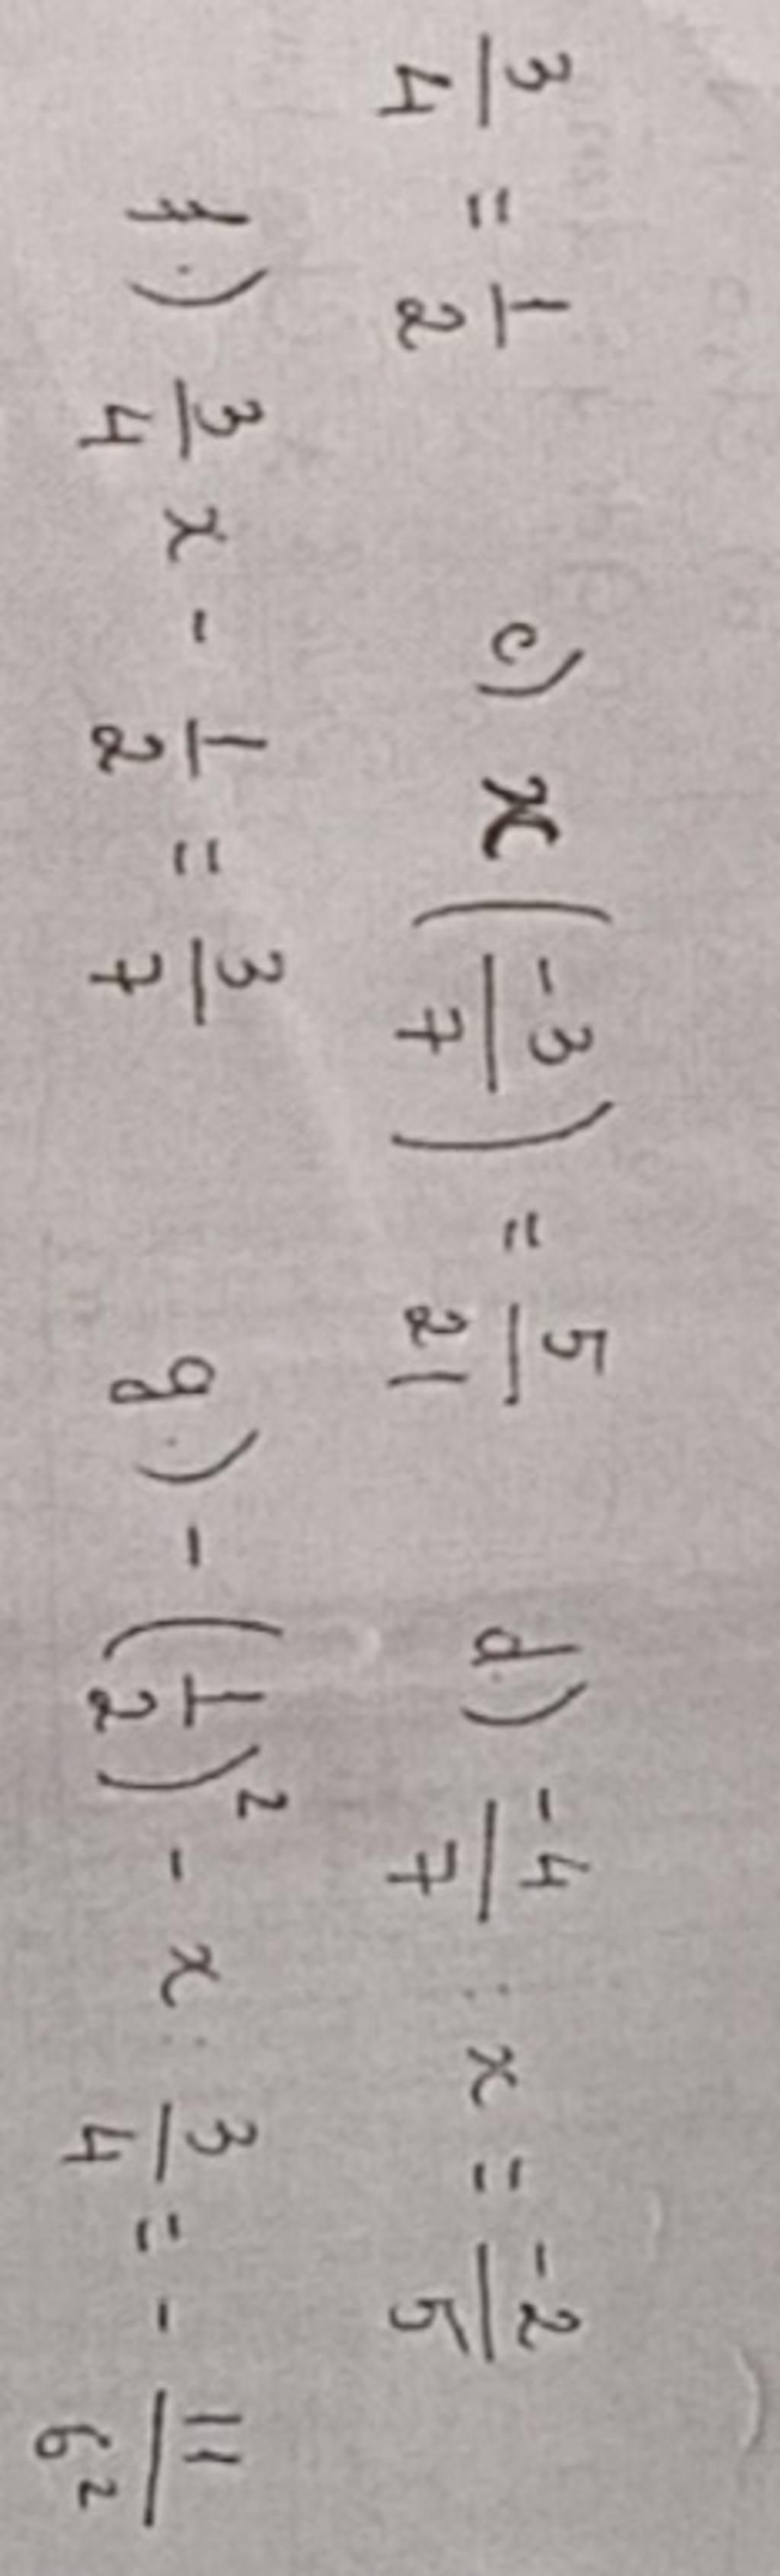 3/4 = 1/2 c) x(-3/7) = 5/21 d.) -4/7 : x = -2/5
f.) 3/4 x - 1/2 = 3/7 g.) -(1/2)² - x : 3/4 = - 11/6²